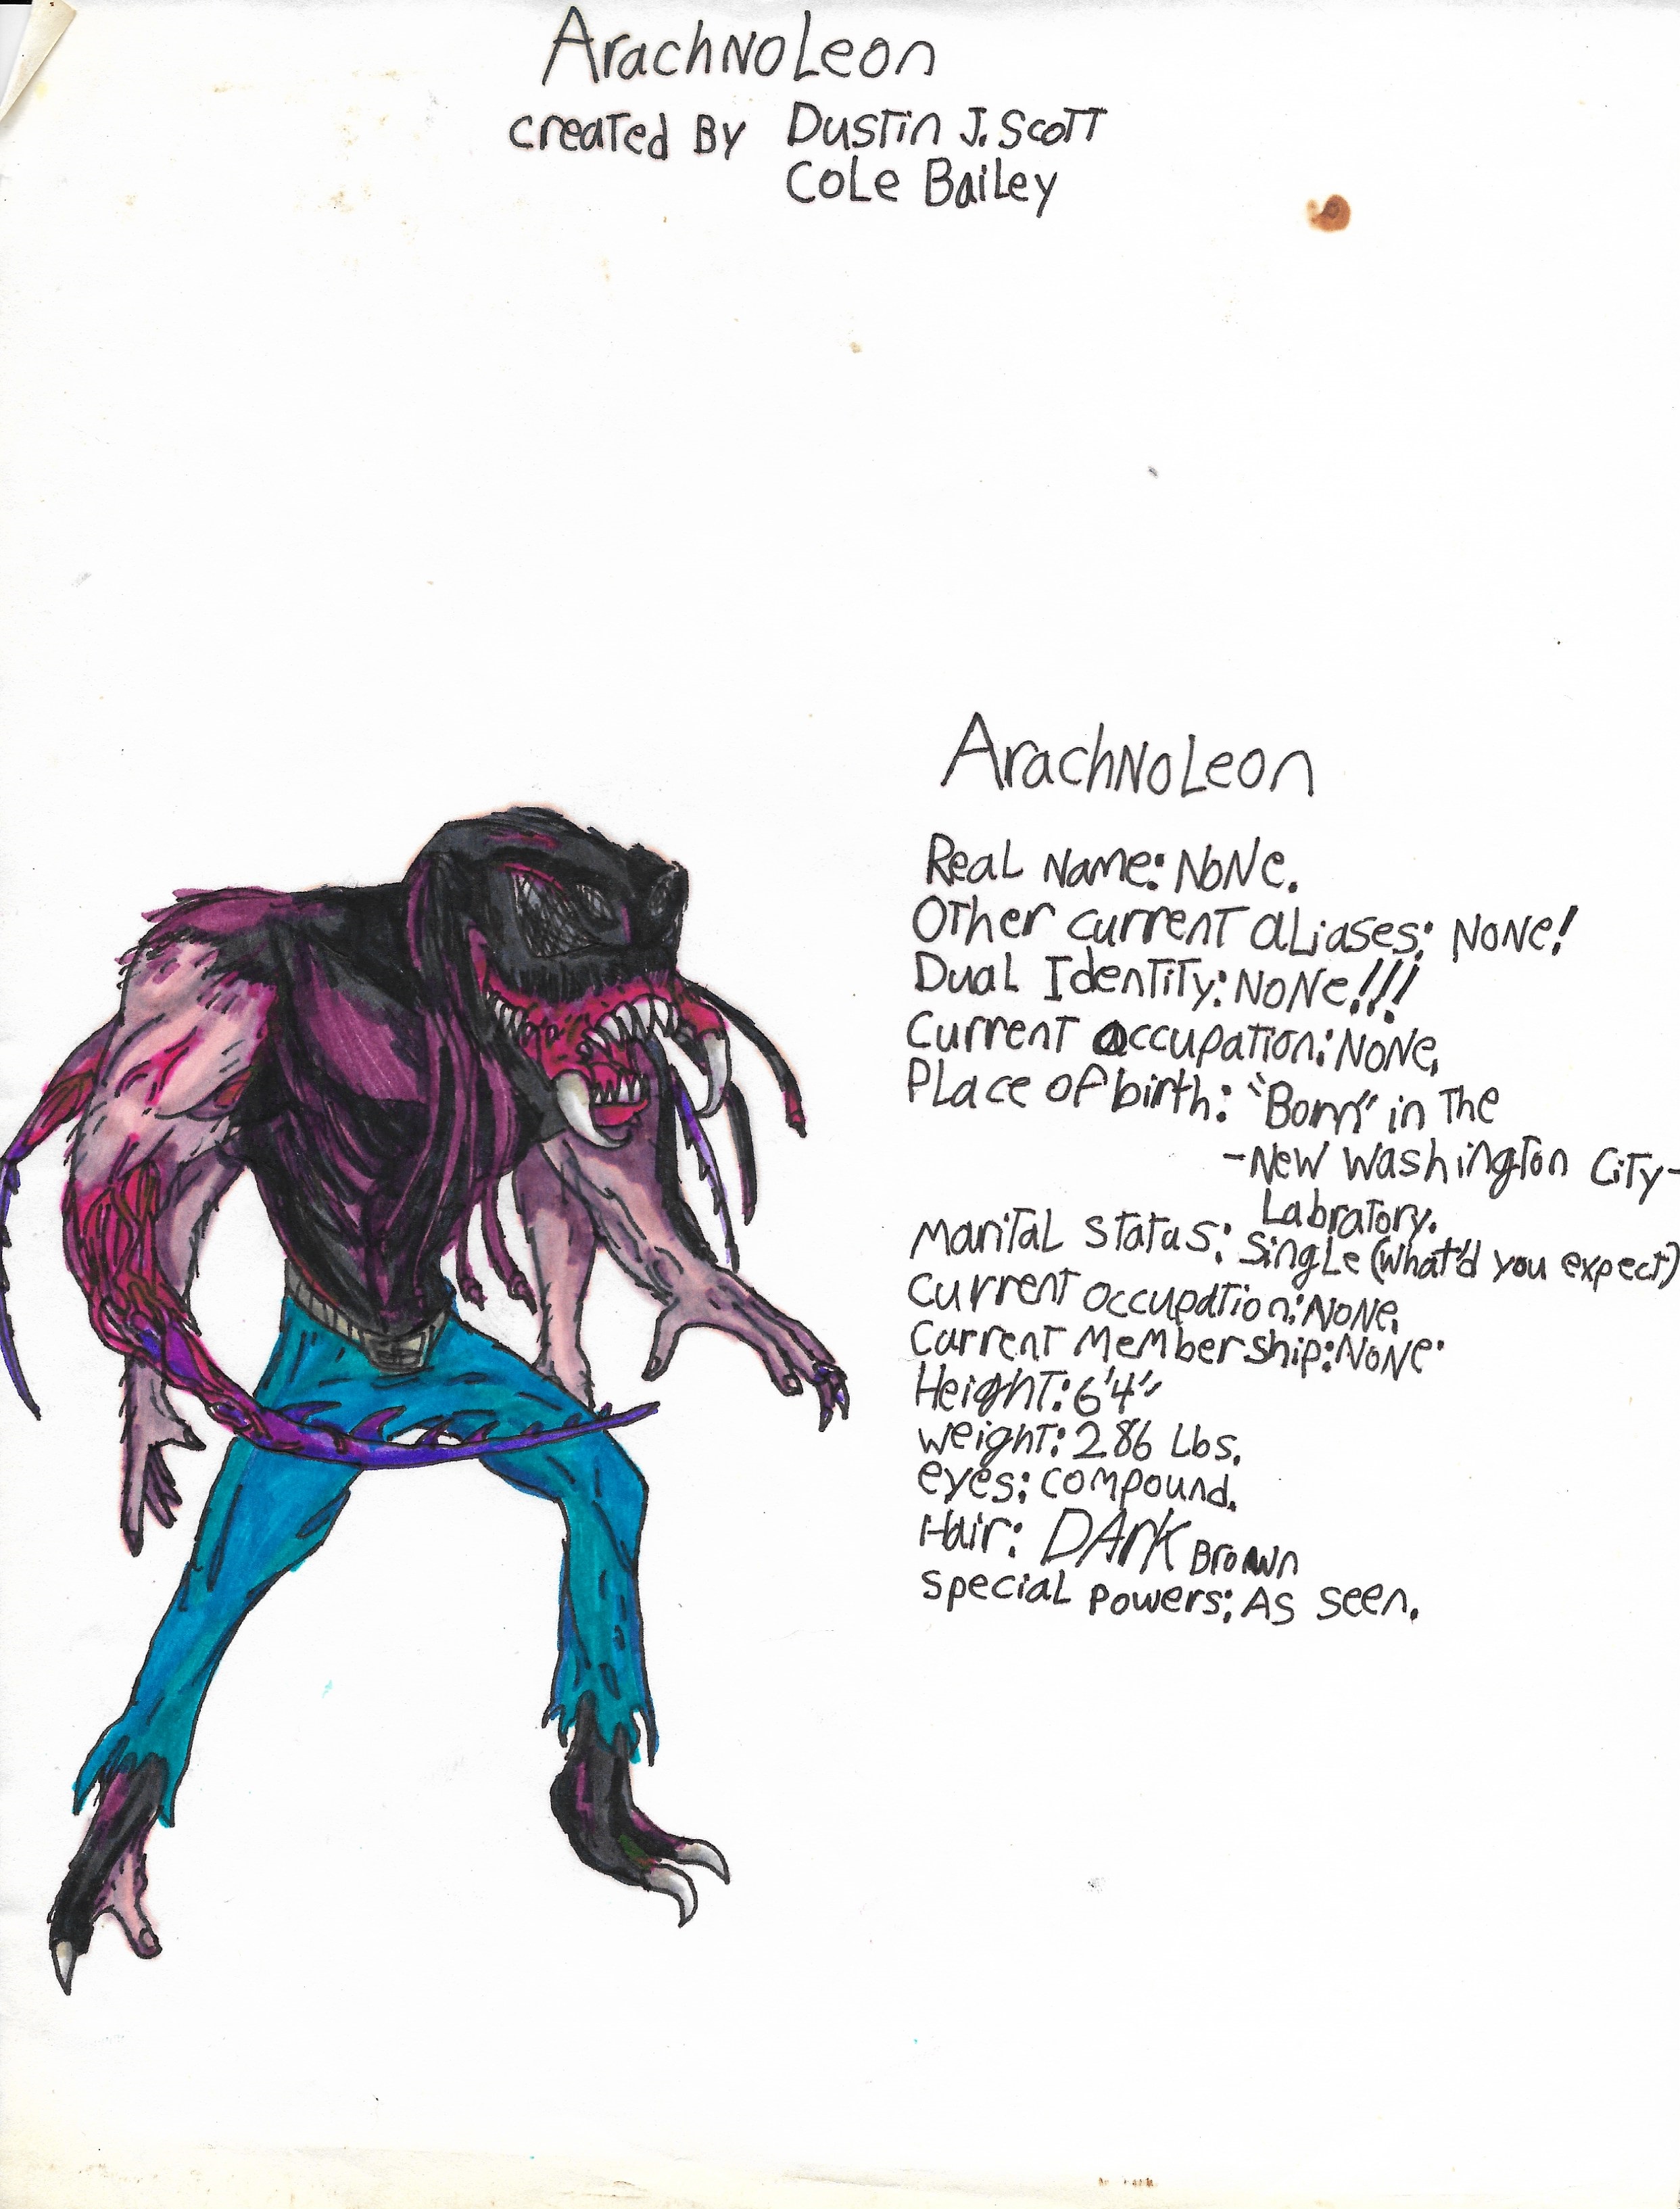 ArachnoLeon
created By Dustin J. Scott
Cole Bailey
ArachnoLeon
Real Name: NoNe.
Other current aliases: NoNe!
Dual Identity: NoNe!!!
Current Occupation: NoNe.
Place of birth: "Born" in The
-New Washington City-
Labratory.
Marital Status: Single (what'd you expect)
Current occupation: NoNe.
Current Membership: NoNe.
Height: 6'4"
weight: 286 Lbs.
eyes: compound.
Hair: DArk Brown
special powers: As seen.